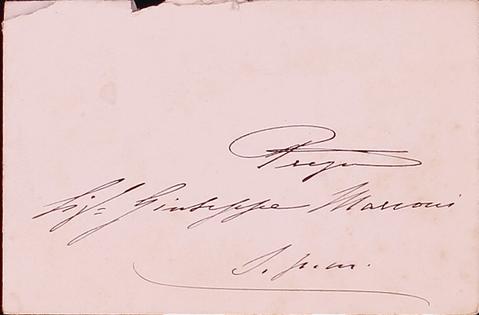 Preg.
Sig.r Giuseppe Marconi
S. p. m.